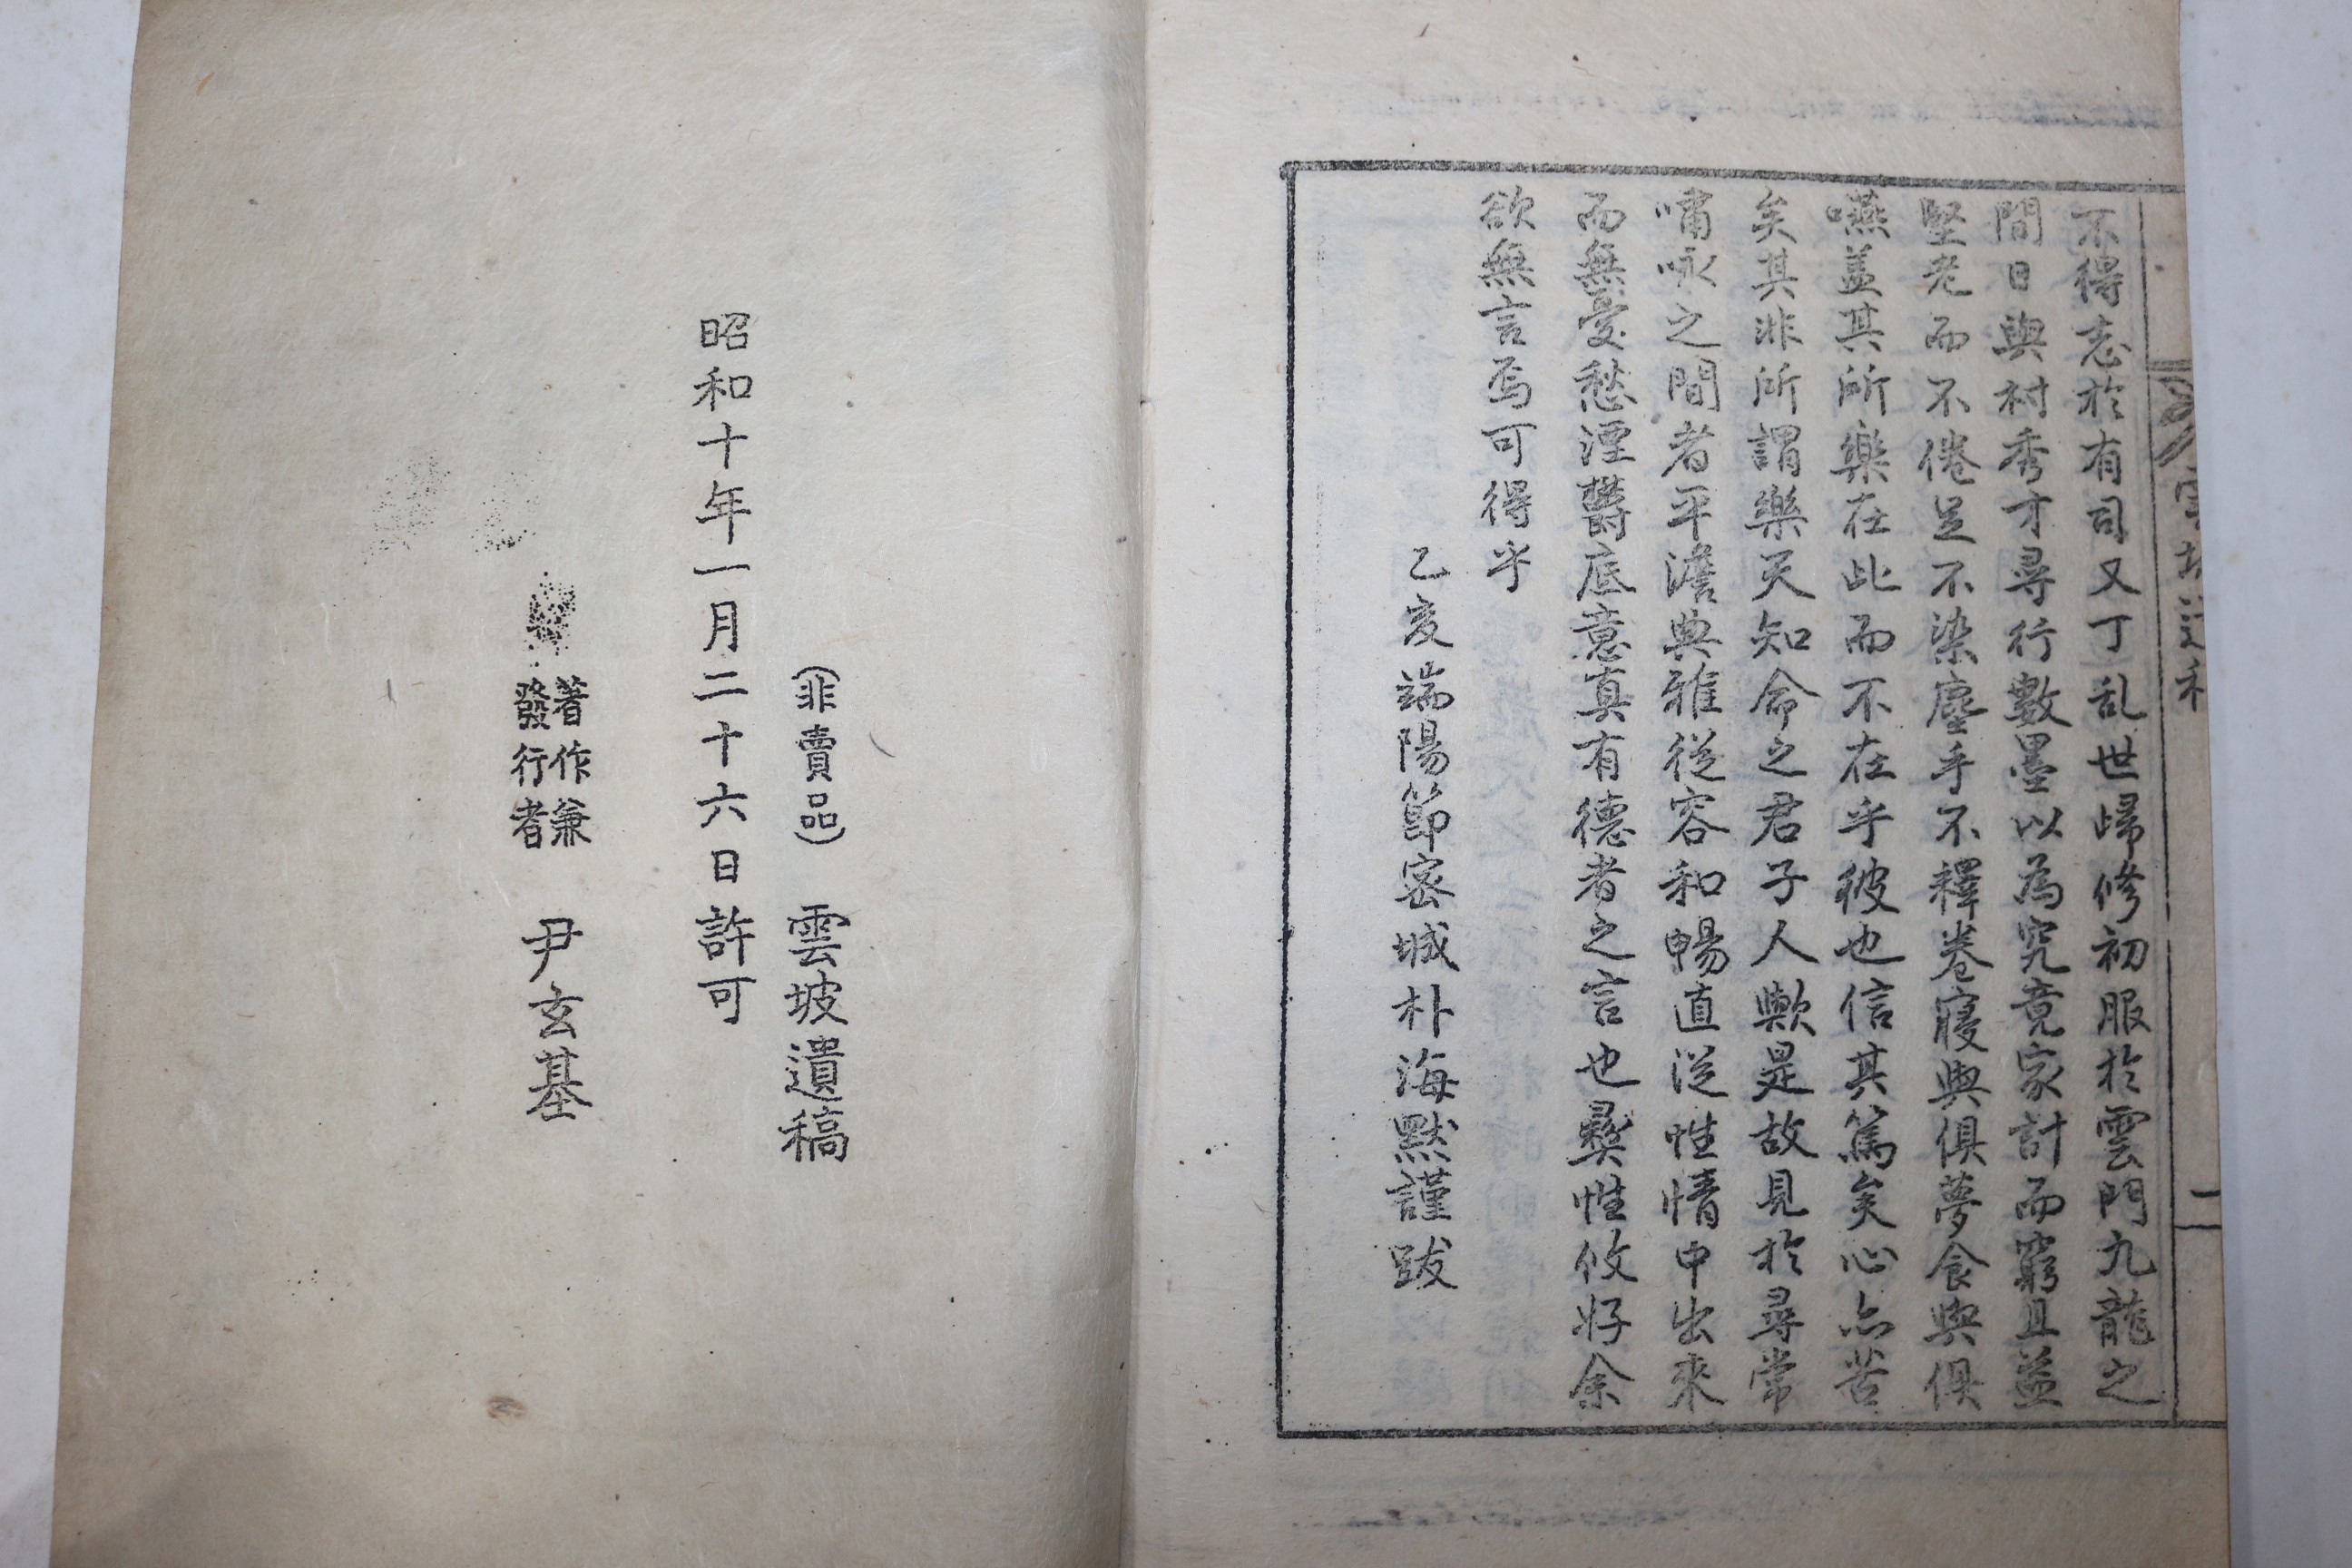 雲坡遺稿
二
不得志於有司又丁乱世歸修初服於雲門九龍之
間日與村秀才尋行數墨以為究竟家計而窮且益
堅老而不倦足不染塵手不釋卷寢與俱夢食與俱
嚥盖其所樂在此而不在乎彼也信其篤矣心亦苦
矣其非所謂樂天知命之君子人歟是故見於尋常
嘯咏之間者平澹典雅從容和暢直從性情中出來
而無憂愁湮欝底意真有德者之言也彛性攸好余
欲無言焉可得乎
乙亥端陽節密城朴海默謹跋
(非賣品) 雲坡遺稿
昭和十年一月二十六日許可
著作兼
發行者 尹玄基